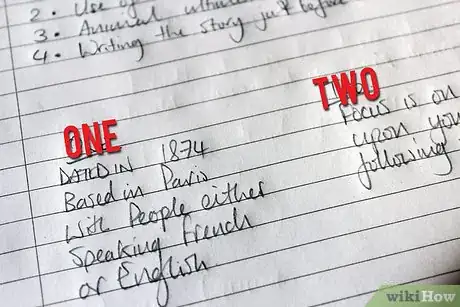 2. Use of
3. Animal
4. Writing the story just before
ONE
DATED IN 1874
Based in Paris
with People either
Speaking French
or English
TWO
FOCUS is on
upon you
following
wikiHow